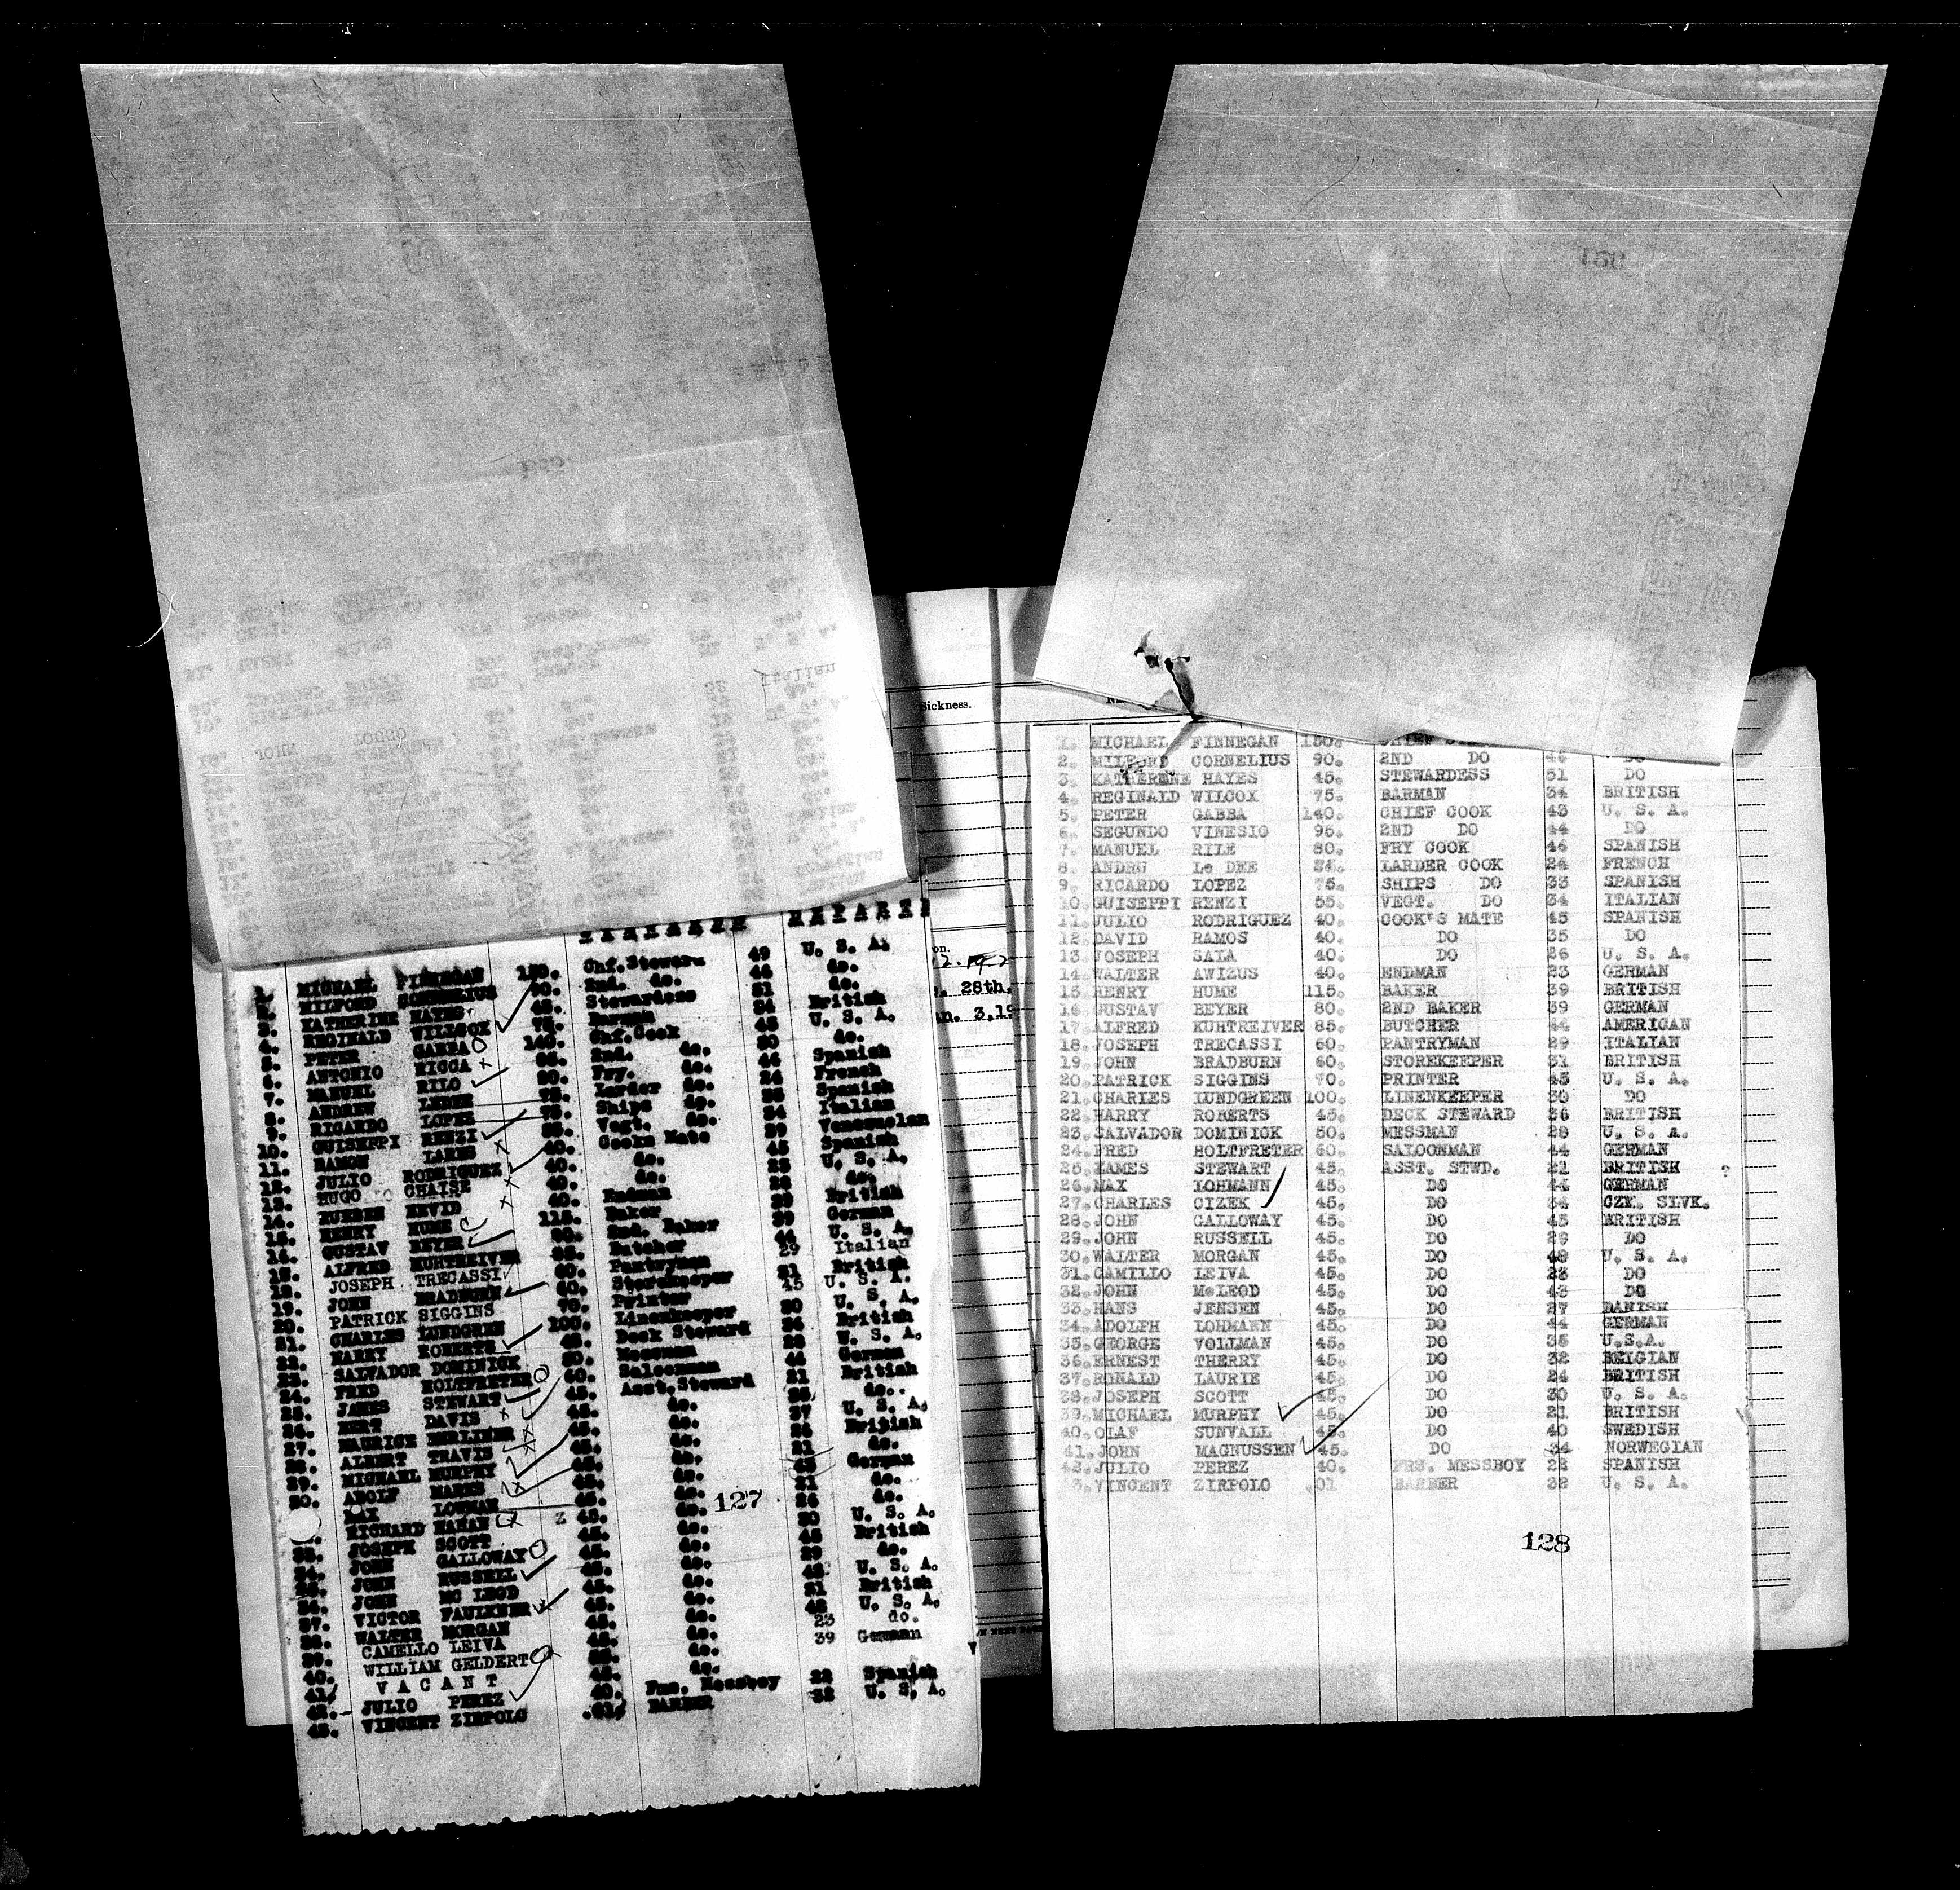 Sickness.
on.
28th.
n. 3,19
1. MICHAEL FINNEGAN 150. Chf. Steward 49 U. S. A.
2. MILFORD CORNELIUS 90. 2nd. do. 46 do.
3. KATHERINE HAYES 45. Stewardess 51 do.
4. REGINALD WILCOX 75. Barman 34 British
5. PETER GABBA 140. Chf. Cook 43 U. S. A.
6. ANTONIO RICCA 95. 2nd. do. 50 do.
7. MANUEL RILO 80. Fry. do. 46 Spanish
8. ANDREW LEDEE 75. Larder do. 24 French
9. RICARDO LOPEZ 75. Ships do. 33 Spanish
10. GUISEPPI RENZI 55. Vegt. do. 34 Italian
11. RAMON LARES 40. Cooks Mate 39 Venezuelan
12. JULIO RODRIGUEZ 40. do. 45 Spanish
13. HUGO CHAISE 40. do. 23 U. S. A.
14. RUEBEN NEVID 40. Endman do.
15. HENRY HUME 115. Baker 39 British
16. GUSTAV BEYER 80. 2nd. Baker 39 German
17. ALFRED KUHTREIVER 85. Butcher 44 U. S. A.
18. JOSEPH TRECASSI 60. Pantryman 29 Italian
19. JOHN BRADBURN 60. Storekeeper 31 British
20. PATRICK SIGGINS 70. Printer 45 U. S. A.
21. CHARLES LUNDGREN 100. Linenkeeper 50 U. S. A.
22. HARRY ROBERTS 45. Deck Steward 36 British
23. SALVADOR DOMINICK 50. Messman 28 U. S. A.
24. FRED HOLTFRETER 60. Saloonman 44 German
25. JAMES STEWART 45. Asst. Steward 21 British
26. BERT DAVIS 45. do. do.
27. MAURICE BERLINER 45. do. 27 U. S. A.
28. ALBERT TRAVIS 45. do. British
29. MICHAEL MURPHY 45. do. 21 do.
30. ADOLF MARKS 45. do. German
MAX LOHMAN 45. do. do.
RICHARD HAHAN 45. do. 26 do.
JOSEPH SCOTT 45. do. 30 U. S. A.
34. JOHN GALLOWAY 45. do. 45 British
35. JOHN RUSSELL 45. do. 29 do.
36. JOHN MC LEOD 45. do. 43 U. S. A.
37. VICTOR FAULKNER 45. do. 21 British
38. WALTER MORGAN 45. do. 48 U. S. A.
39. CAMELLO LEIVA 45. do. 23 do.
40. WILLIAM GELDERT 45. do. 39 German
41. V A C A N T 45. do.
42. JULIO PEREZ 40. Fns. Messboy 22 Spanish
43. VINCENT ZIRPOLO .01 BARBER 32 U. S. A.
127
1. MICHAEL FINNEGAN 150. CHIEF
2. MILFORD CORNELIUS 90. 2ND DO 46 DO
3. KATHERENE HAYES 45. STEWARDESS 51 DO
4. REGINALD WILCOX 75. BARMAN 34 BRITISH
5. PETER GABBA 140. CHIEF COOK 43 U. S. A.
6. SEGUNDO VINESIO 95. 2ND DO 44 DO
7. MANUEL RILE 80. FRY COOK 46 SPANISH
8. ANDRG Le DEE LARDER COOK 24 FRENCH
9. RICARDO LOPEZ 75. SHIPS DO 33 SPANISH
10. GUISEPPI RENZI 55. VEGT. DO 34 ITALIAN
11. JULIO RODRIGUEZ 40. COOK'S MATE 45 SPANISH
12. DAVID RAMOS 40. DO 35 DO
13. JOSEPH SALA 40. DO 26 U. S. A.
14. WALTER AWIZUS 40. ENDMAN 23 GERMAN
15. HENRY HUME 115. BAKER 39 BRITISH
16. GUSTAV BEYER 80. 2ND BAKER 39 GERMAN
17. ALFRED KUHTREIVER 85. BUTCHER 44 AMERICAN
18. JOSEPH TRECASSI 60. PANTRYMAN 29 ITALIAN
19. JOHN BRADBURN 60. STOREKEEPER 31 BRITISH
20. PATRICK SIGGINS 70. PRINTER 45 U. S. A.
21. CHARLES LUNDGREEN 100. LINENKEEPER 50 DO
22. HARRY ROBERTS 45. DECK STEWARD 36 BRITISH
23. SALVADOR DOMINICK 50. MESSMAN 28 U. S. A.
24. FRED HOLTFRETER 60. SALOONMAN 44 GERMAN
25. JAMES STEWART 45. ASST. STWD. 21 BRITISH ?
26. MAX LOHMANN 45. DO 44 GERMAN
27. CHARLES CIZEK 45. DO 34 CZK. SLVK.
28. JOHN GALLOWAY 45. DO 45 BRITISH
29. JOHN RUSSELL 45. DO 29 DO
30. WALTER MORGAN 45. DO 48 U. S. A.
31. CAMILLO LEIVA 45. DO 23 DO
32. JOHN McLEOD 45. DO 43 DO
33. HANS JENSEN 45. DO 27 DANISH
34. ADOLPH LOHMANN 45. DO 44 GERMAN
35. GEORGE VOLLMAN 45. DO 35 U.S.A.
36. ERNEST THERRY 45. DO 32 BELGIAN
37. RONALD LAURIE 45. DO 24 BRITISH
38. JOSEPH SCOTT 45. DO 30 U. S. A.
39. MICHAEL MURPHY 45. DO 21 BRITISH
40. OLAF SUNVALL 45. DO 40 SWEDISH
41. JOHN MAGNUSSEN 45. DO 34 NORWEGIAN
42. JULIO PEREZ 40. FRS. MESSBOY 22 SPANISH
3. VINCENT ZIRPOLO .01 BARBER 32 U. S. A.
128